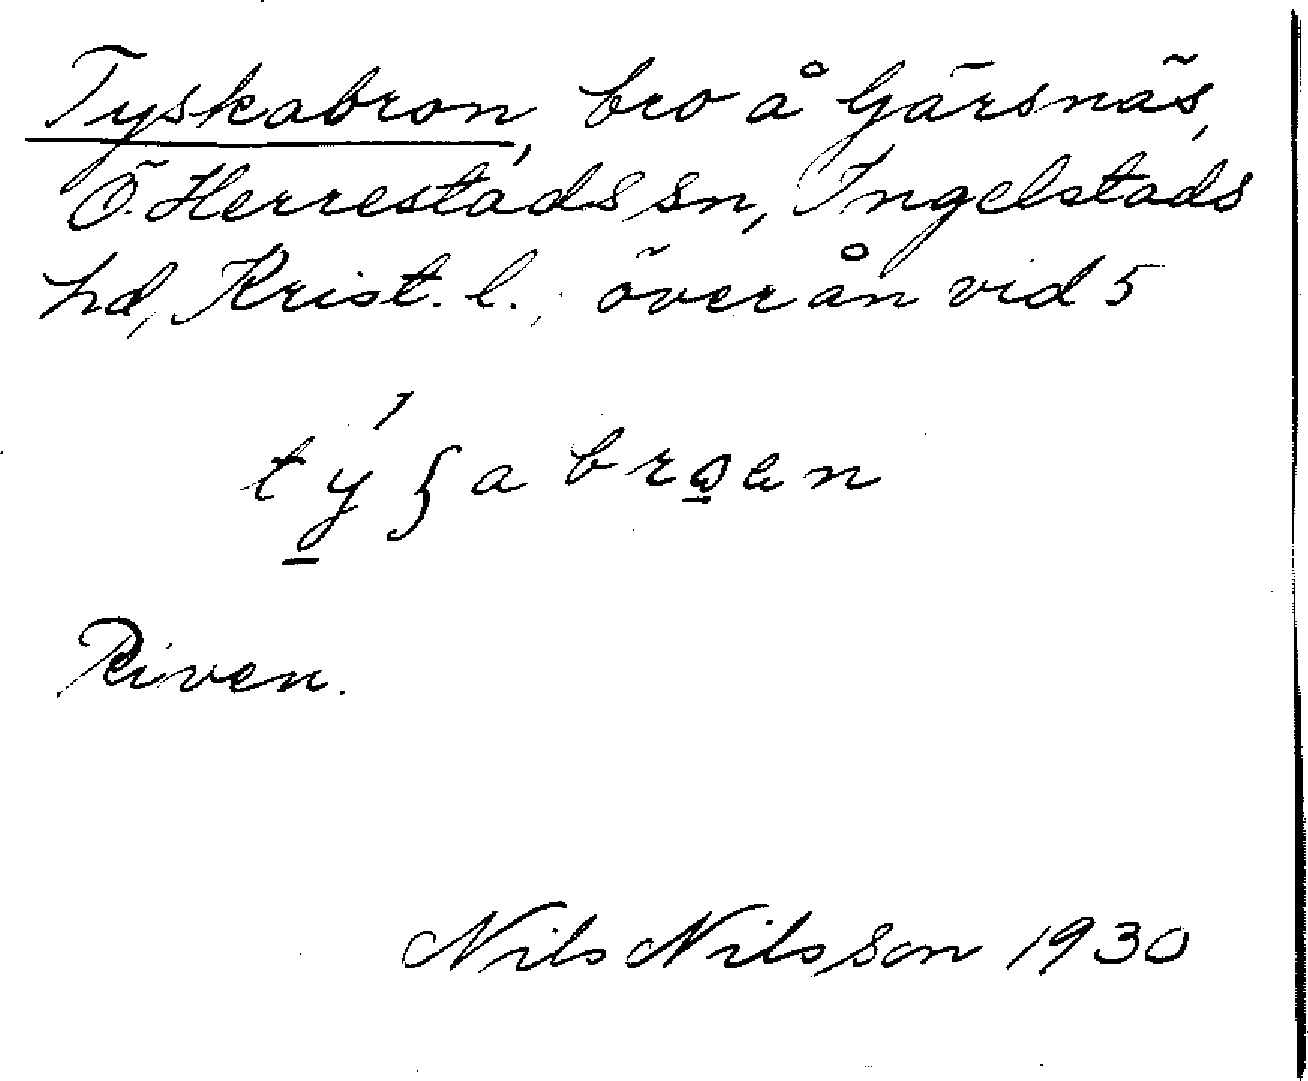 Tyskabron, bro å Gärsnäs,
Ö. Herrestads sn, Ingelstads
hd, Krist. l., över ån vid 5
Riven.
Nils Nilsson 1930